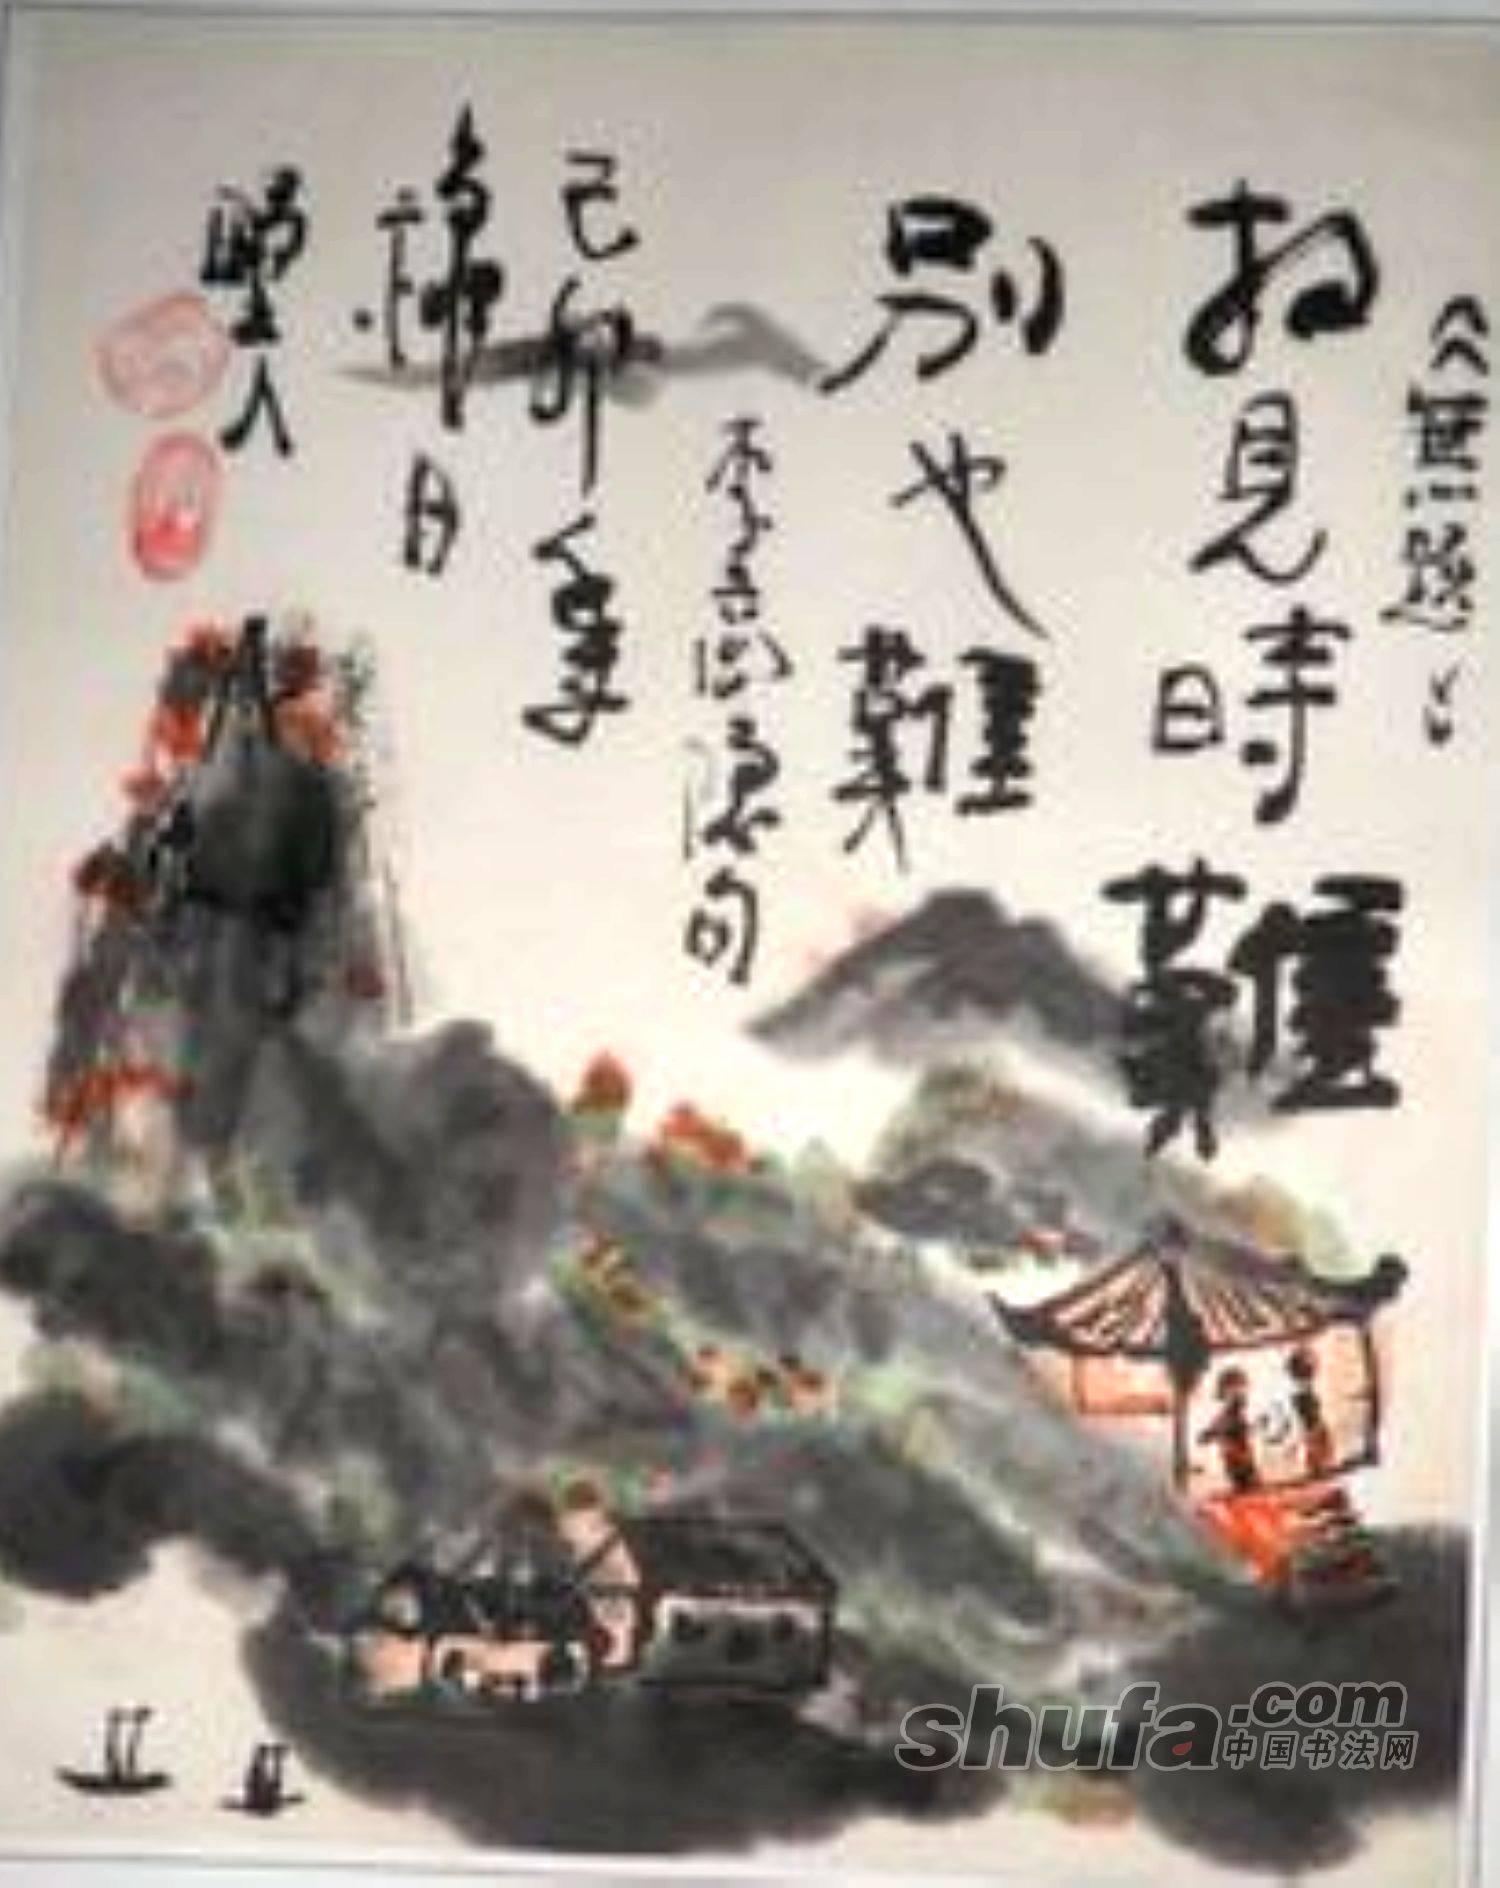 《無題》
相見時難
別也難
李商隱句
己卯年
穐日
野人
shufa.com
中国书法网